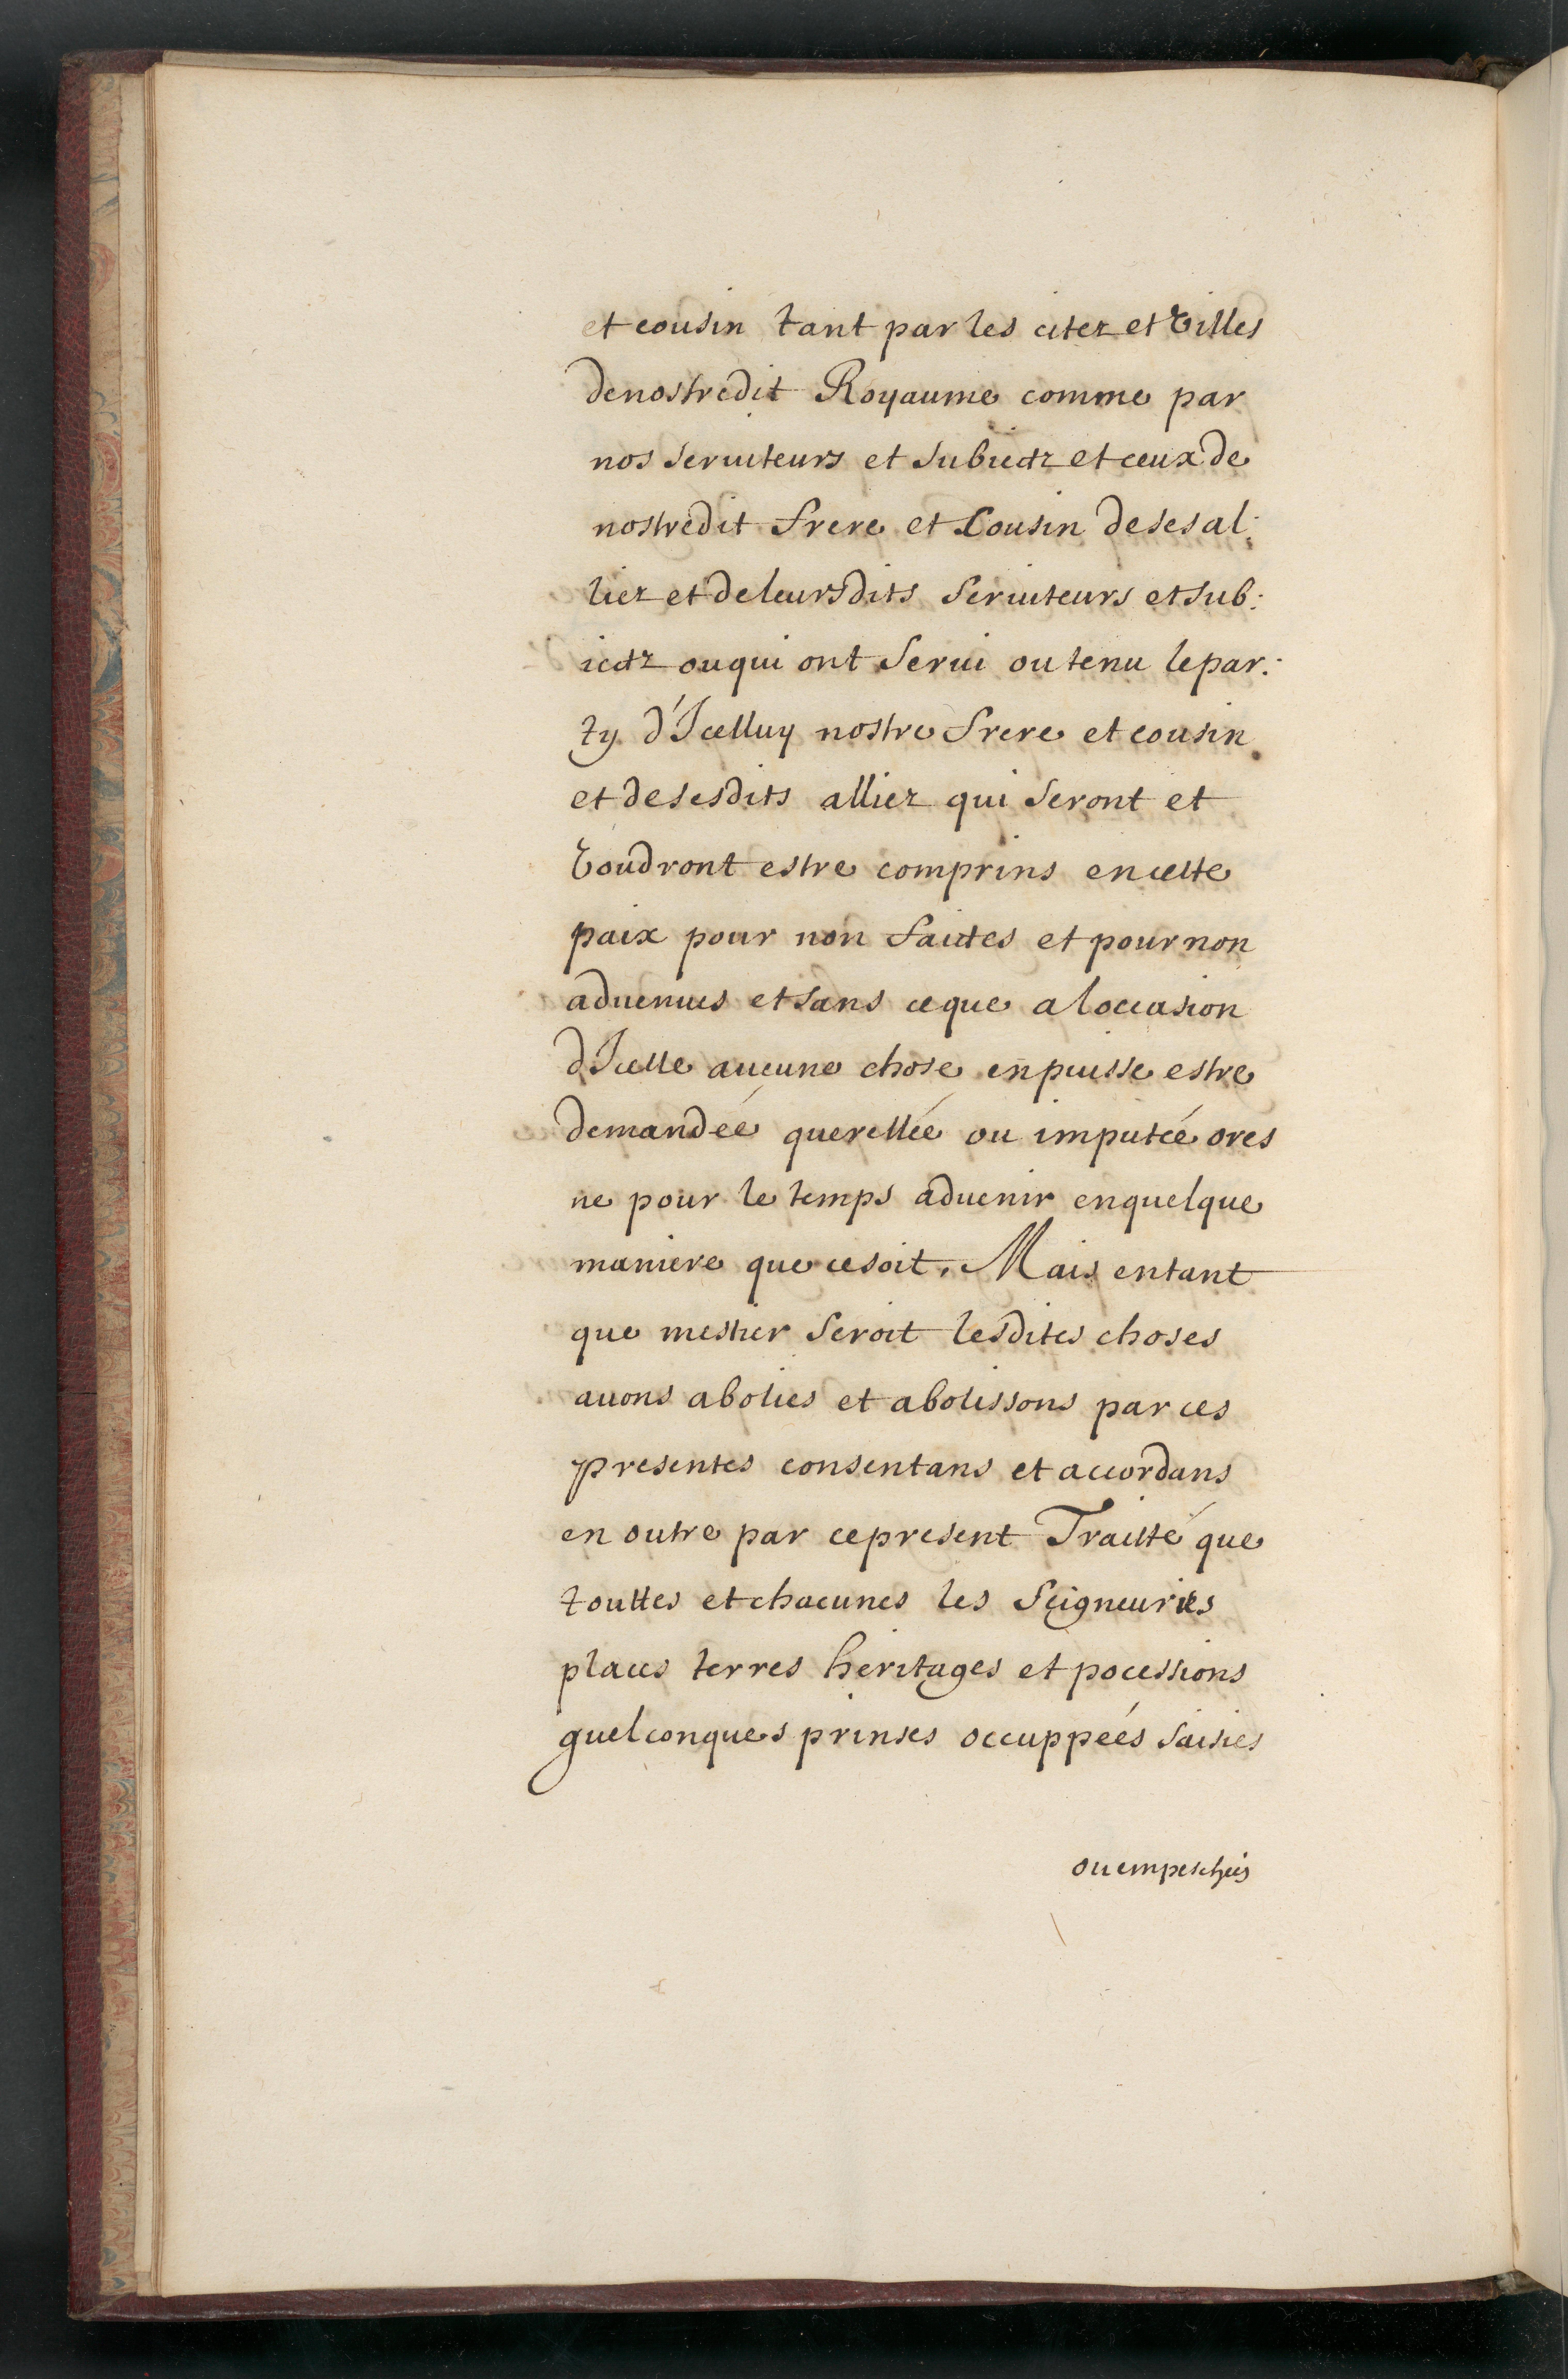 et cousin tant par les citez et Villes
de nostredit Royaume comme par
nos seruiteurs et subiectz et ceux de
nostredit frere et Cousin de ses al:
liez et de leursdits seruiteurs et sub:
iectz ou qui ont serui ou tenu le par:
ty d'Icelluy nostre frere et cousin
et de sesdits alliez qui seront et
Voudront estre comprins en cette
paix pour non faictes et pour non
aduenues et sans ce que a loccasion
dIcelle aucune chose en puisse estre
demandéé querellée ou imputéé ores
ne pour le temps aduenir en quelque
maniere que ce soit, Mais en tant
que mestier seroit lesdites choses
auons abolies et abolissons par ces
presentes consentans et accordans
en outre par ce present Traitté que
touttes et chacunes les seigneuries
places terres heritages et pocessions
quelconques prinses occuppéés saisies
ou empeschéés